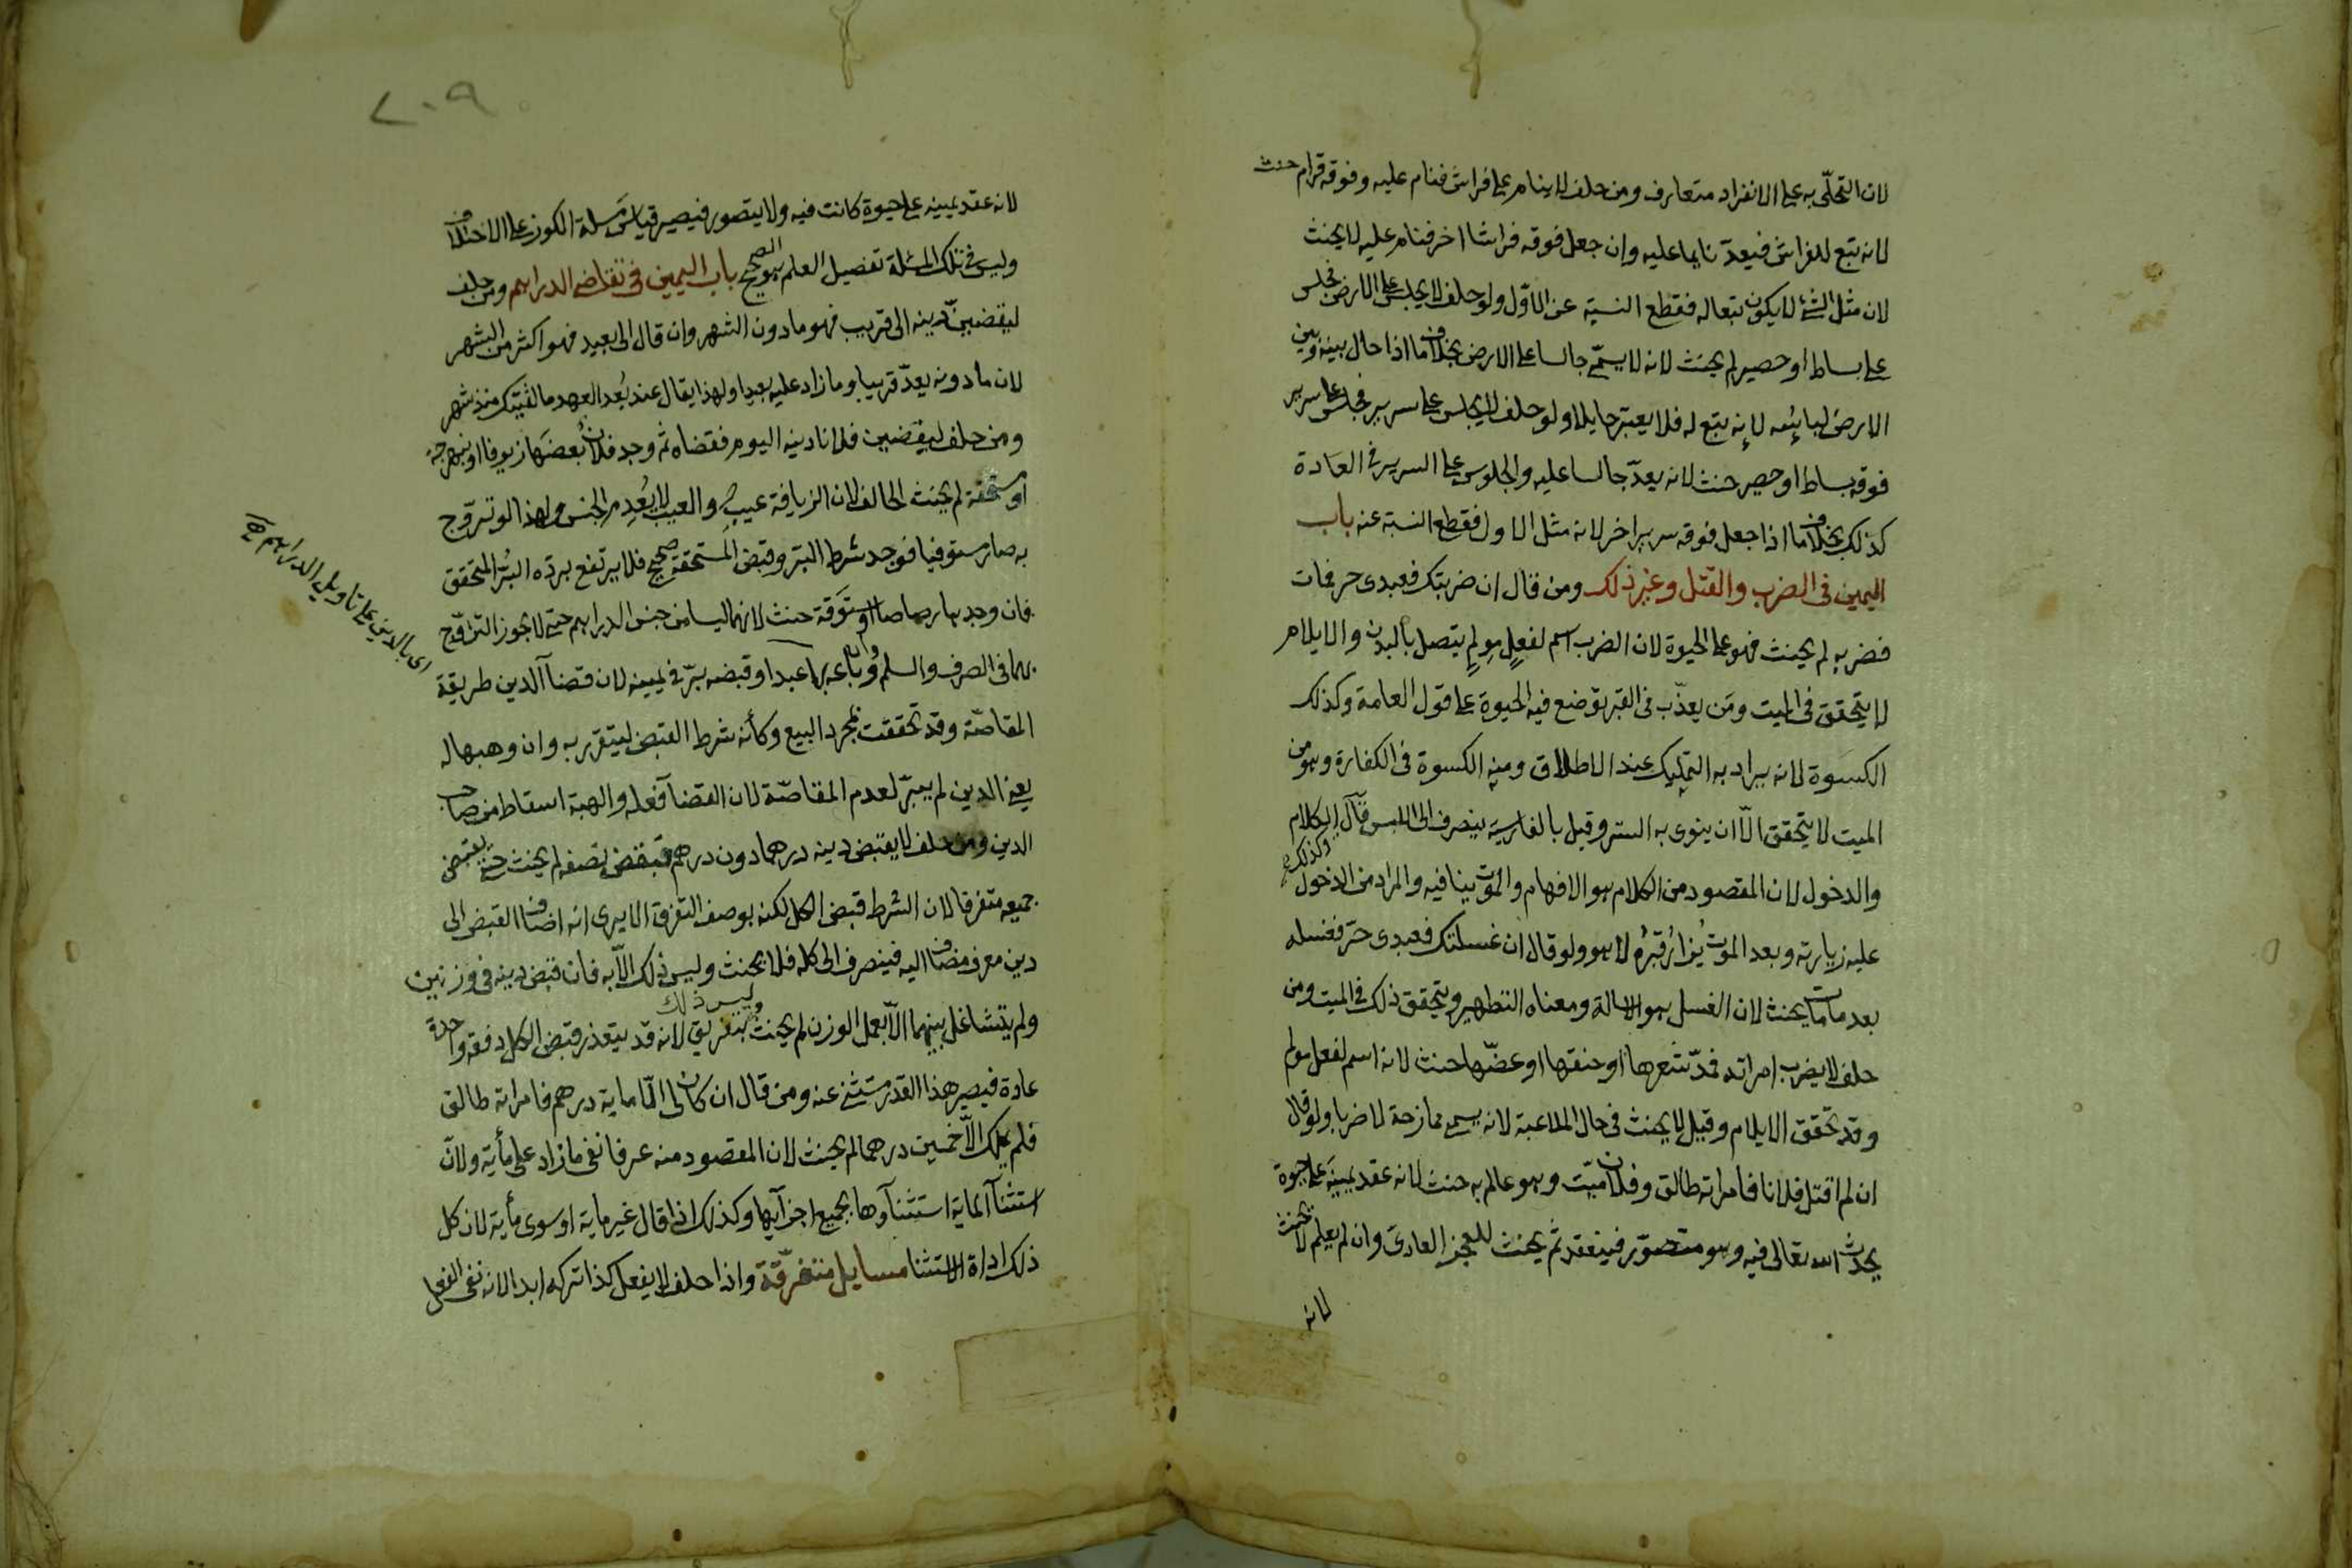 لان التحلّى به على الانفراد متعارف ومن حلف لا ينام على فراش فنام عليه وفوقه قرام حنث
لانه تبع للفراش فيعدّ نايما عليه وان جعل فوقه فراشا اخر فنام عليه لا يحنث
لان مثل الشئ لا يكون تبعا له فقطع النسبة عن الاوّل ولو حلف لا يجلس على الارض فجلس
على بساط او حصير لم يحنث لانه لا يسمّى جالسا على الارض بخلاف ما اذا حال بينه وبين
الارض لباسه لانه تبع له فلا يعتبر حايلا ولو حلف لا يجلس على سرير فجلس على سرير
فوقه بساط او حصير حنث لانه يعدّ جالسا عليه والجلوس على السرير فى العادة
كذلك بخلاف ما اذا جعل فوقه سريرا اخر لانه مثل الاول فقطع النسبة عنه باب
اليمين فى الضرب والقتل وغير ذلك ومن قال ان ضربتك فعبدى حر فمات
فضربه لم يحنث فهو على الحيوة لان الضرب اسم لفعلٍ مولمٍ يتصل بالبدن والايلام
لا يتحقق فى الميت ومَن يعذّب فى القبر توضع فيه الحيوة على قول العامة وكذلك
الكسوة لانه يراد به التمليك عند الاطلاق ومنه الكسوة فى الكفارة وهو من
الميت لا يتحقق الّا ان ينوى به الستر وقيل بالفارسية ينصرف الى اللبس قال وكذلك الكلام
والدخول لان المقصود من الكلام هو الافهام والموت ينافيه والمراد من الدخول
عليه زيارته وبعد الموت يُزار قبرُه لا هو ولو قال ان غسلتك فعبدى حرّ فغسله
بعد ما مات يحنث لان الغسل هو الاسالة ومعناه التطهير ويتحقق ذلك فى الميت ومن
حلف لا يضرب امراته فمدّ شعرها او خنقها او عضّها حنث لانه اسم لفعل مولم
وقد تحقق الايلام وقيل لا يحنث فى حال الملاعبة لانه يسمى ممازحة لا ضربا ولو قال
ان لم اقتل فلانا فامراته طالق وفلان ميّت وهو عالم به حنث لانه عقد يمينه على حيوة
يحدث الله تعالى فيه وهو متصوّر فينعقد ثم يحنث للعجز العادى وان لم يعلم لا يحنث
لانه
٢٠٩
لانه عقد يمينه على حيوة كانت فيه ولا يتصور فيصير قياس مسلة الكوز على الاختلاف
وليس فى تلك المسئلة تفصيل العلم هو الصحيح باب اليمين فى تقاضى الدراهم ومن حلف
ليقضينّ دينه الى قريب فهو ما دون الشهر وان قال الى بعيد فهو اكثر من الشهر
لان ما دونه يعدّ قريبا وما زاد عليه بعيدا ولهذا يقال عند بُعد العهد ما لقيتك منذ شهر
ومن حلف ليقضين فلانا دينه اليوم فقضاه ثم وجد فلان بعضَها زيوفا او نبهرجة
او مستحقة لم يحنث الحالف لان الزيافة عيب والعيب لا يُعدِم الجنس ولهذا لو تجوّز
به صار مستوفيا فوجد شرط البرّ وقبض المستحقة صحيح فلا يرتفع بردّه البرُّ المتحقق
فان وجدها رصاصا او ستوقة حنث لانهما ليسا من جنس الدراهم حتى لا يجوز التجوّز
بهما فى الصرف والسلم وان باعه بها عبدا وقبضه برّ فى يمينه لان قضآ الدين طريقة
المقاصّة وقد تحققت بمجرد البيع وكأنه شرط القبض ليتقرر به وان وهبها له
يعنى الدين لم يبرّ لعدم المقاصّة لان القضآ فعله والهبة اسقاط من صاحب
الدين ومن حلف لا يقبض دينه درهما دون درهم فقبض نصفه لم يحنث حتى يقبض
جميعه متفرقا لان الشرط قبض الكل لكنه بوصف التفرق الا يرى انه اضاف القبض الى
دين معرف مضاف اليه فينصرف الى كله فلا يحنث وليس ذلك الّا به فان قبض دينه فى وزنين
ولم يتشاغل بينهما الّا بعمل الوزن لم يحنث وليس ذلك بتفريق لانه قد يتعذر قبض الكل دفعة واحدة
عادة فيصير هذا القدر مستثنى عنه ومن قال ان كان لى الّا ماية درهم فامراته طالق
فلم يملك الّا خمسين درهما لم يحنث لان المقصود منه عرفا نفى ما زاد على مأية ولانّ
استثنآ الماية استثنآوها بجميع اجزآيها وكذلك اذا قال غير ماية او سوى مأية لان كل
ذلك اداة الاستثنا مسايل متفرّقة واذا حلف لا يفعل كذا تركه ابدا لانه نفى الفعل
اى بالدين على تاويل الدراهم